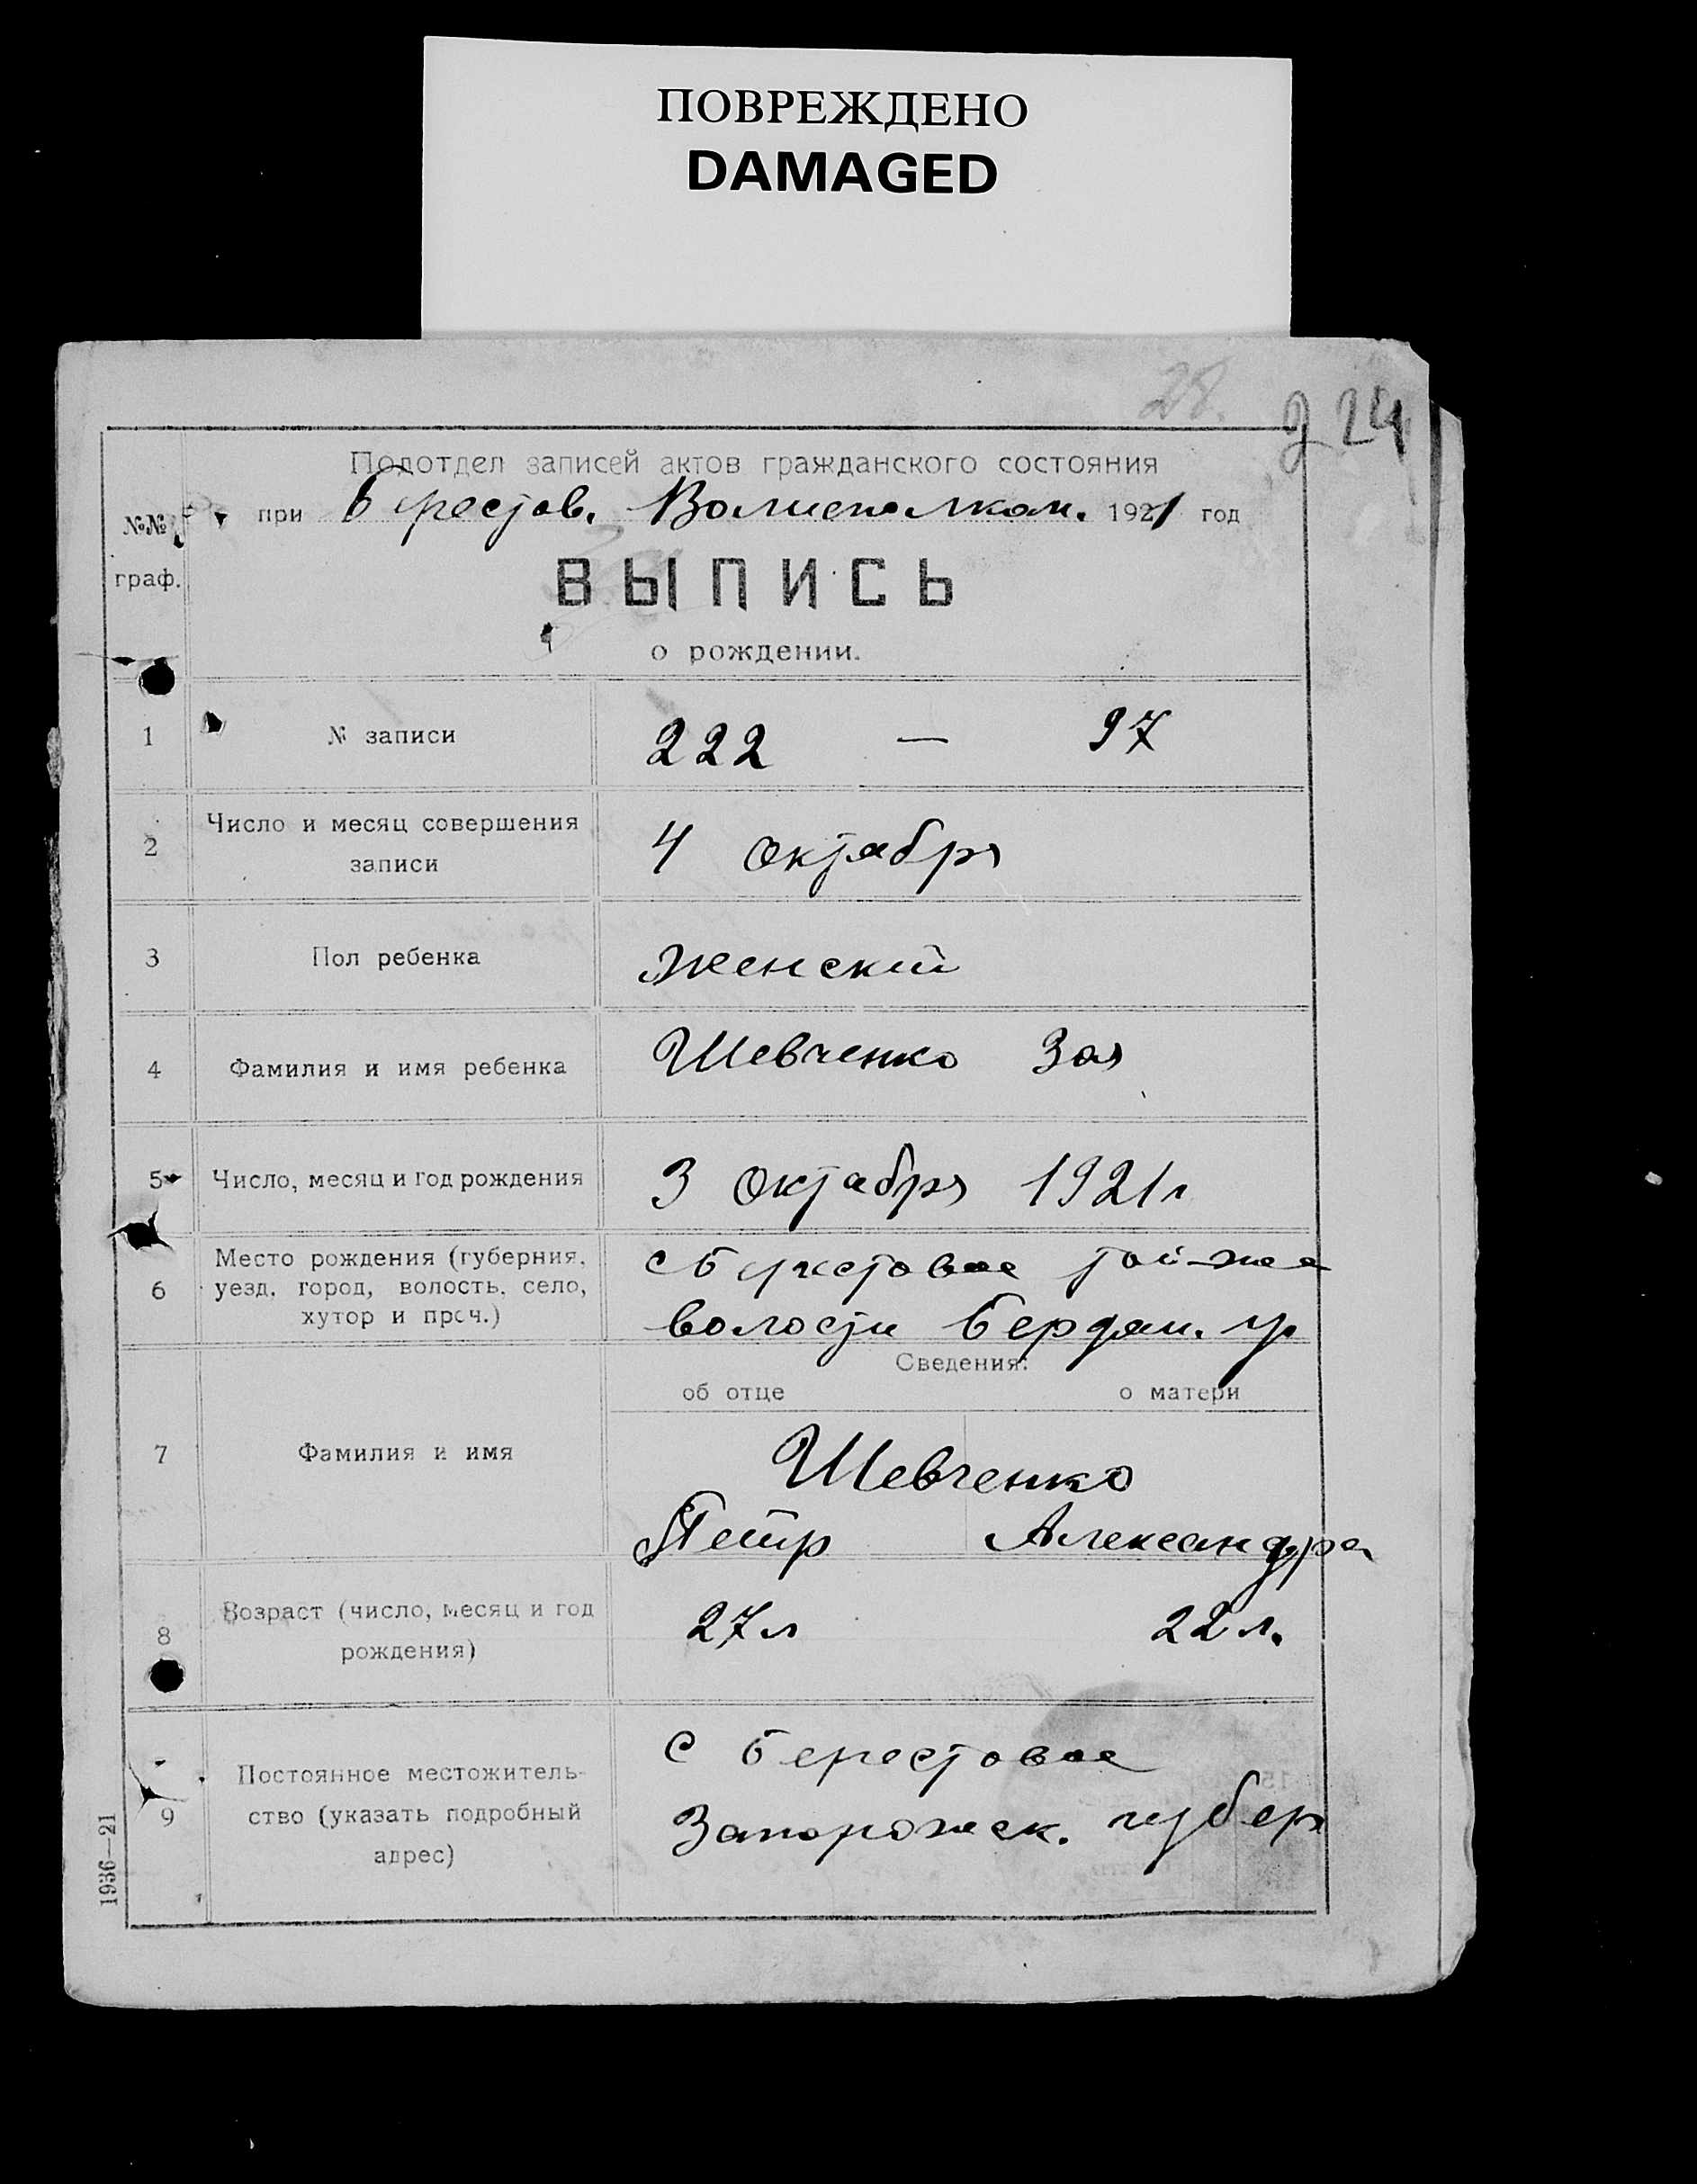 ПОВРЕЖДЕНО
DAMAGED
28.
224
Подотдел записей актов гражданского состояния
№№ при Берестов. Волисполком. 1921 год
граф.
ВЫПИСЬ
о рождении.
1 № записи 222 — 97
2 Число и месяц совершения
записи 4 октября
3 Пол ребенка женский
4 Фамилия и имя ребенка Шевченко Зоя
5 Число, месяц и год рождения 3 октября 1921 г
6 Место рождения (губерния, с Берестовое той-же
уезд, город, волость, село,
хутор и проч.) волости Бердян. у
Сведения:
об отце о матери
7 Фамилия и имя Шевченко
Петр Александра
8 Возраст (число, месяц и год
рождения) 27 л 22 л.
9 Постоянное местожитель-
ство (указать подробный
адрес) с Берестовое
Запорожск. губер
1936—21